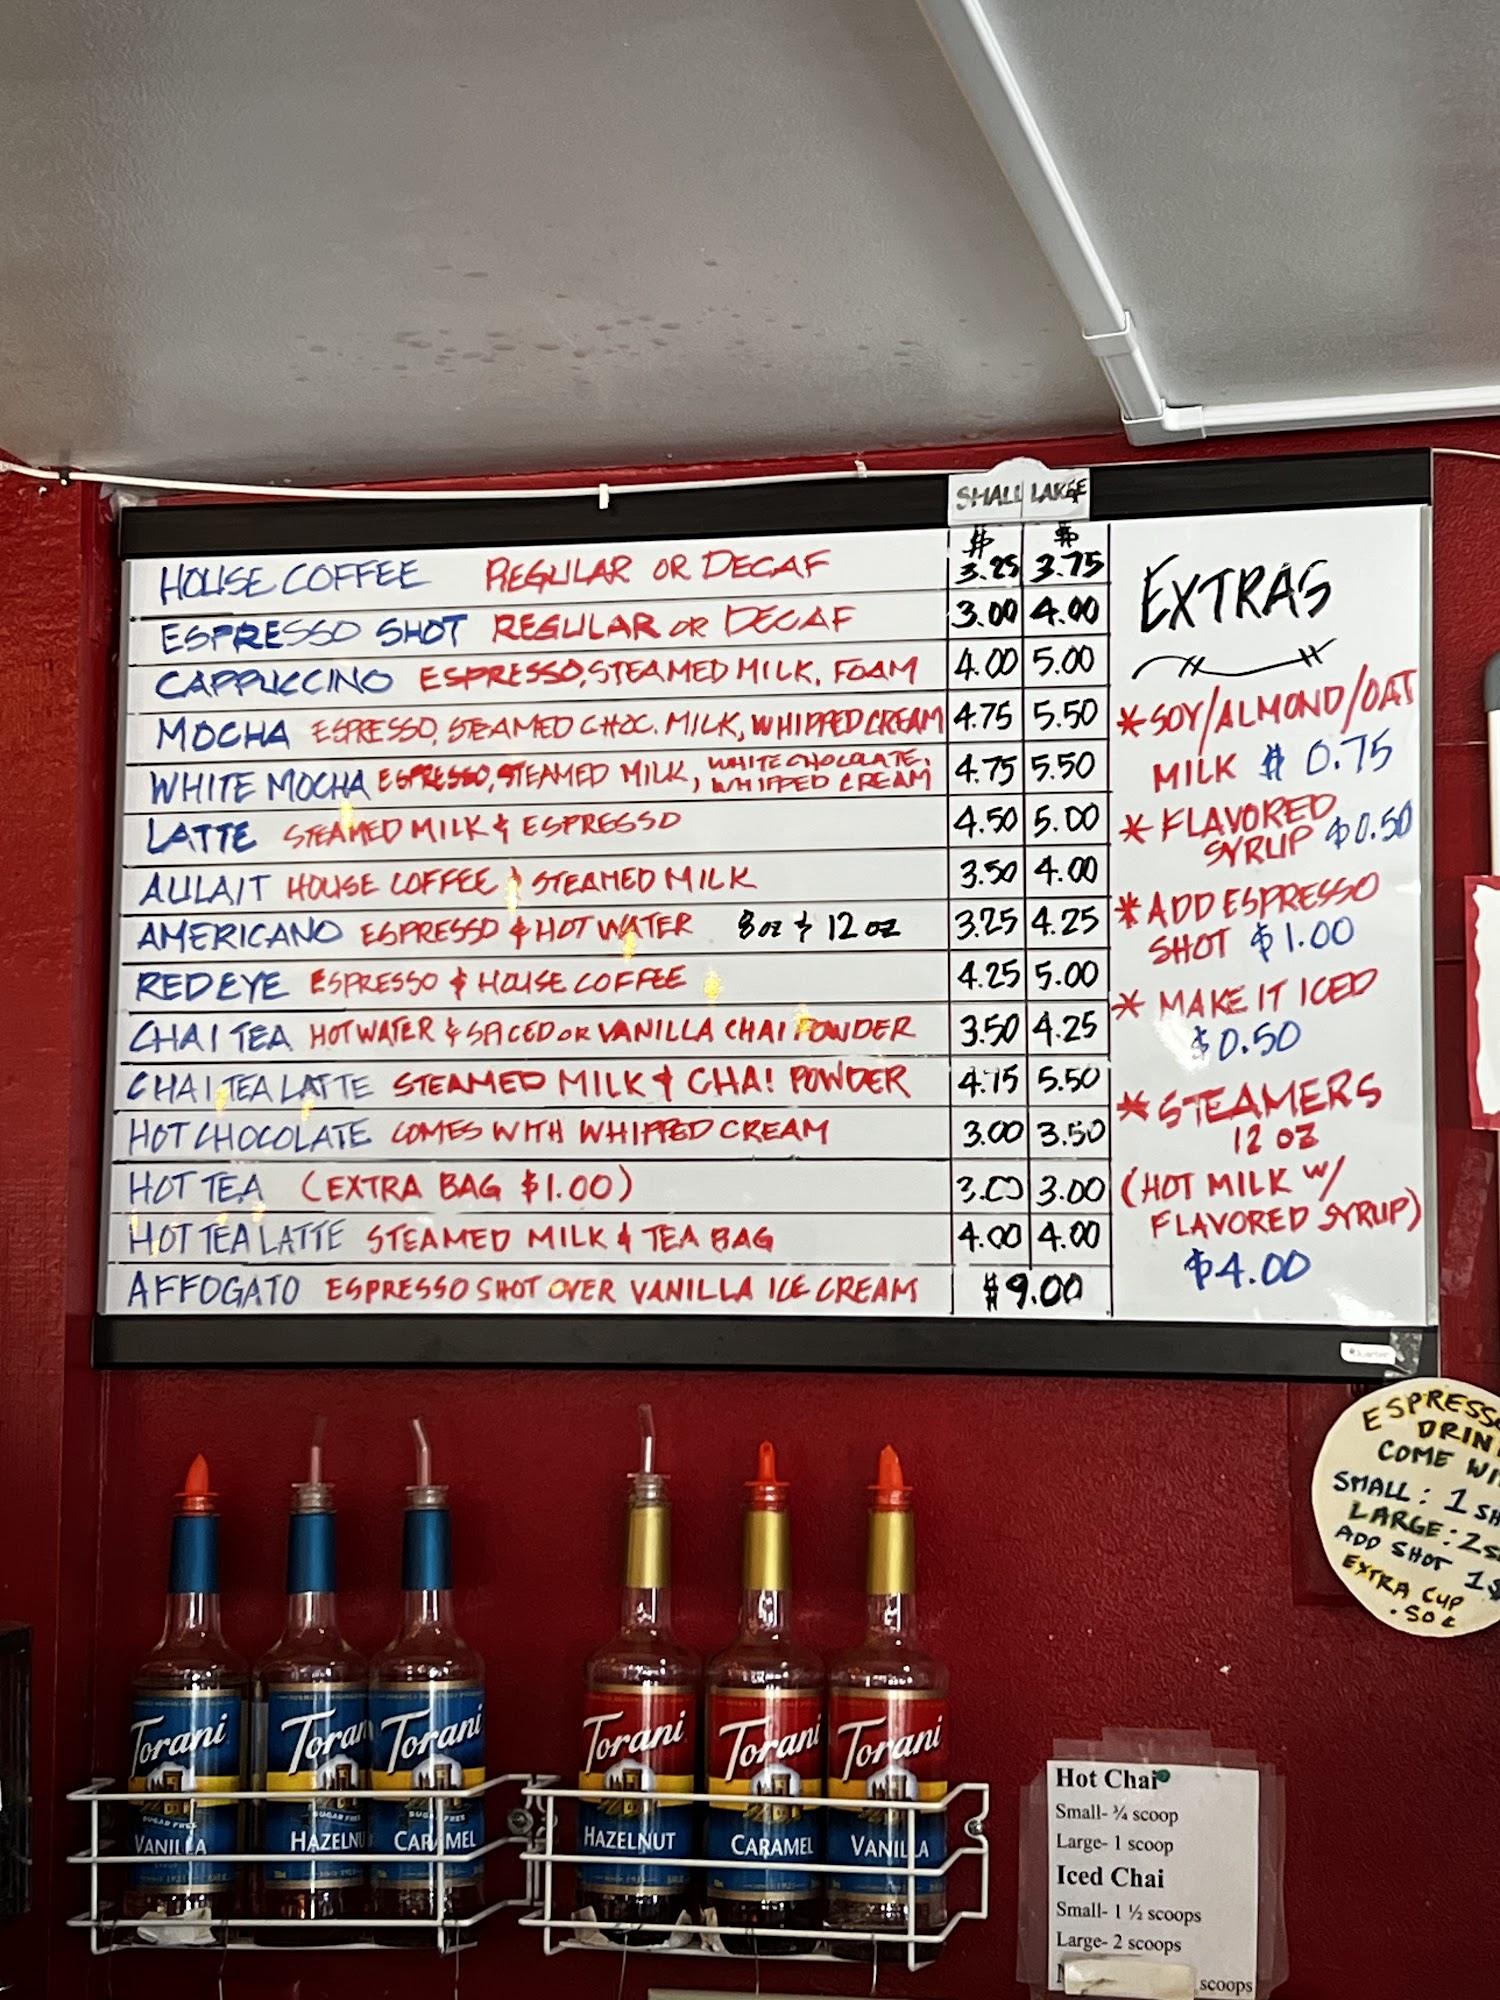 SMALL LARGE
$ $
HOUSE COFFEE REGULAR OR DECAF 3.25 3.75
ESPRESSO SHOT REGULAR OR DECAF 3.00 4.00
CAPPUCCINO ESPRESSO, STEAMED MILK, FOAM 4.00 5.00
MOCHA ESPRESSO, STEAMED CHOC. MILK, WHIPPED CREAM 4.75 5.50
WHITE MOCHA ESPRESSO, STEAMED MILK, WHITE CHOCOLATE, WHIPPED CREAM 4.75 5.50
LATTE STEAMED MILK & ESPRESSO 4.50 5.00
AULAIT HOUSE COFFEE & STEAMED MILK 3.50 4.00
AMERICANO ESPRESSO & HOT WATER 8 oz & 12 oz 3.25 4.25
REDEYE ESPRESSO & HOUSE COFFEE 4.25 5.00
CHAI TEA HOT WATER & SPICED OR VANILLA CHAI POWDER 3.50 4.25
CHAI TEA LATTE STEAMED MILK & CHAI POWDER 4.75 5.50
HOT CHOCOLATE COMES WITH WHIPPED CREAM 3.00 3.50
HOT TEA (EXTRA BAG $1.00) 3.00 3.00
HOT TEA LATTE STEAMED MILK & TEA BAG 4.00 4.00
AFFOGATO ESPRESSO SHOT OVER VANILLA ICE CREAM $9.00
EXTRAS
* SOY/ALMOND/OAT
MILK $ 0.75
* FLAVORED
SYRUP $0.50
* ADD ESPRESSO
SHOT $1.00
* MAKE IT ICED
$0.50
* STEAMERS
12 OZ
(HOT MILK W/
FLAVORED SYRUP)
$4.00
Quartet
ESPRESSO
DRIN
COME WI
SMALL: 1 SH
LARGE: 2 S
ADD SHOT 1$
EXTRA CUP
.50¢
Torani
SUGAR FREE
VANILLA
Torani
SUGAR FREE
HAZELNU
Torani
SUGAR FREE
CARAMEL
Torani
HAZELNUT
Torani
CARAMEL
Torani
VANILLA
Hot Chai
Small- ¾ scoop
Large- 1 scoop
Iced Chai
Small- 1 ½ scoops
Large- 2 scoops
scoops